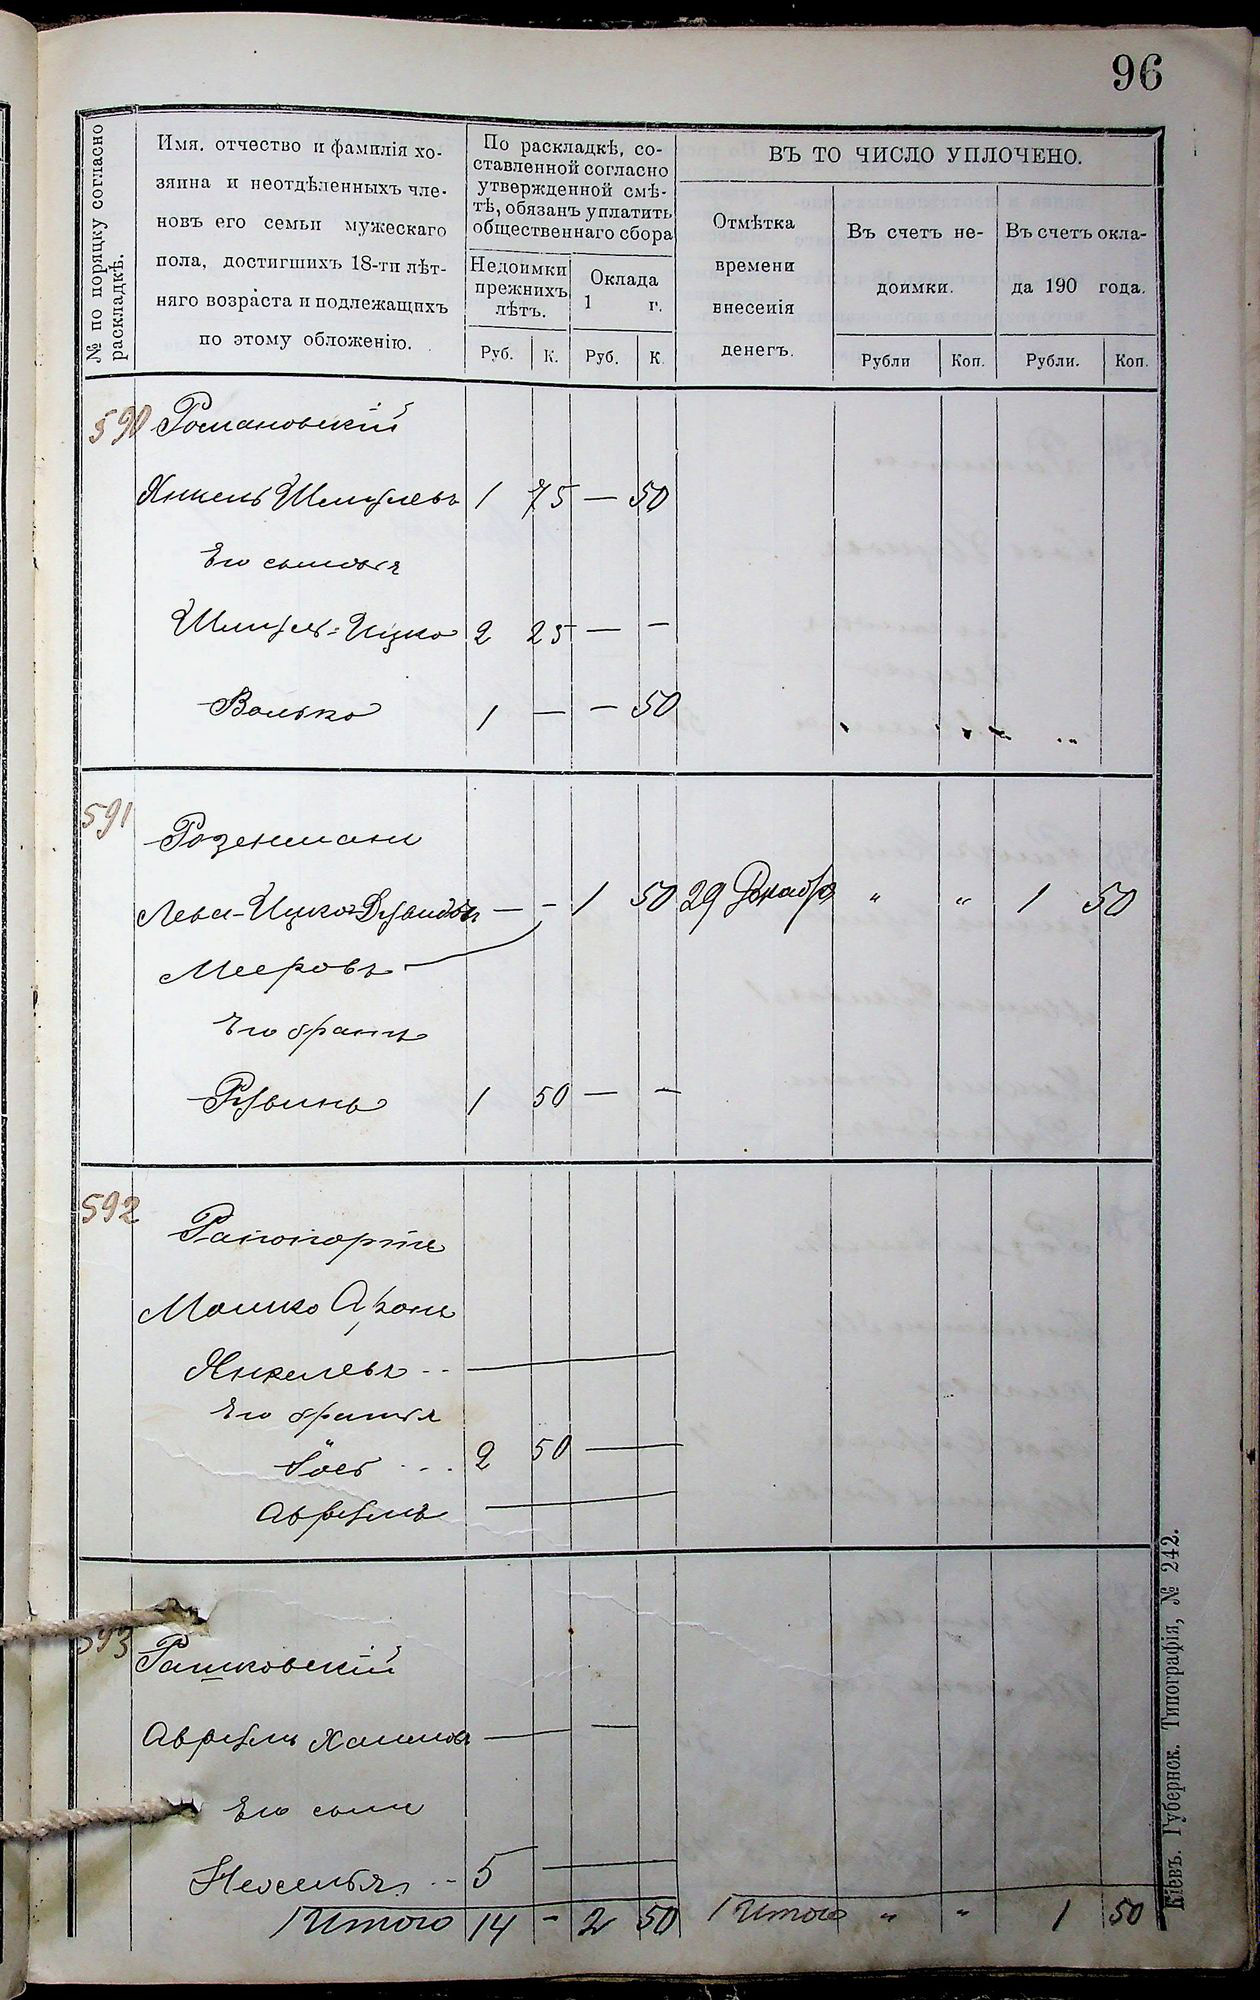 96
№ по порядку согласно раскладкѣ.
Имя. отчество и фамилія хо-
зяина и неотдѣленныхъ чле-
новъ его семьи мужескаго
пола, достигшихъ 18-ти лѣт-
няго возраста и подлежащихъ
по этому обложенію.
По раскладкѣ, со-
ставленной согласно
утвержденной смѣ-
тѣ, обязанъ уплатить
общественнаго сбора
Недоимки
прежнихъ
лѣтъ.
Оклада
1 г.
Руб. К. Руб. К.
ВЪ ТО ЧИСЛО УПЛОЧЕНО.
Отмѣтка
времени
внесенія
денегъ.
Въ счетъ не-
доимки.
Въ счетъ окла-
да 190 года.
Рубли Коп. Рубли. Коп.
590 Романовскій
Янкель Шмулевъ 1 75 — 50
Его сыновья
Шмуль-Ицко 2 25 — —
Волько 1 — — 50
591 Розенманъ
Лейба-Ицко-Дувидъ — — 1 50 29 Декабр " " 1 50
Мееровъ
Его братъ
Рувинъ 1 50 — —
592 Рапопортъ
Мошко Аронъ
Янкелевъ --
Его братья
Іось --- 2 50 —
Аврумъ —
593 Рашковскій
Аврумъ Хаимовъ — —
Его сынъ
5 —
Итого 14 - 2 50 Итого " " 1 50
Кіевъ. Губернск. Типографія, № 242.